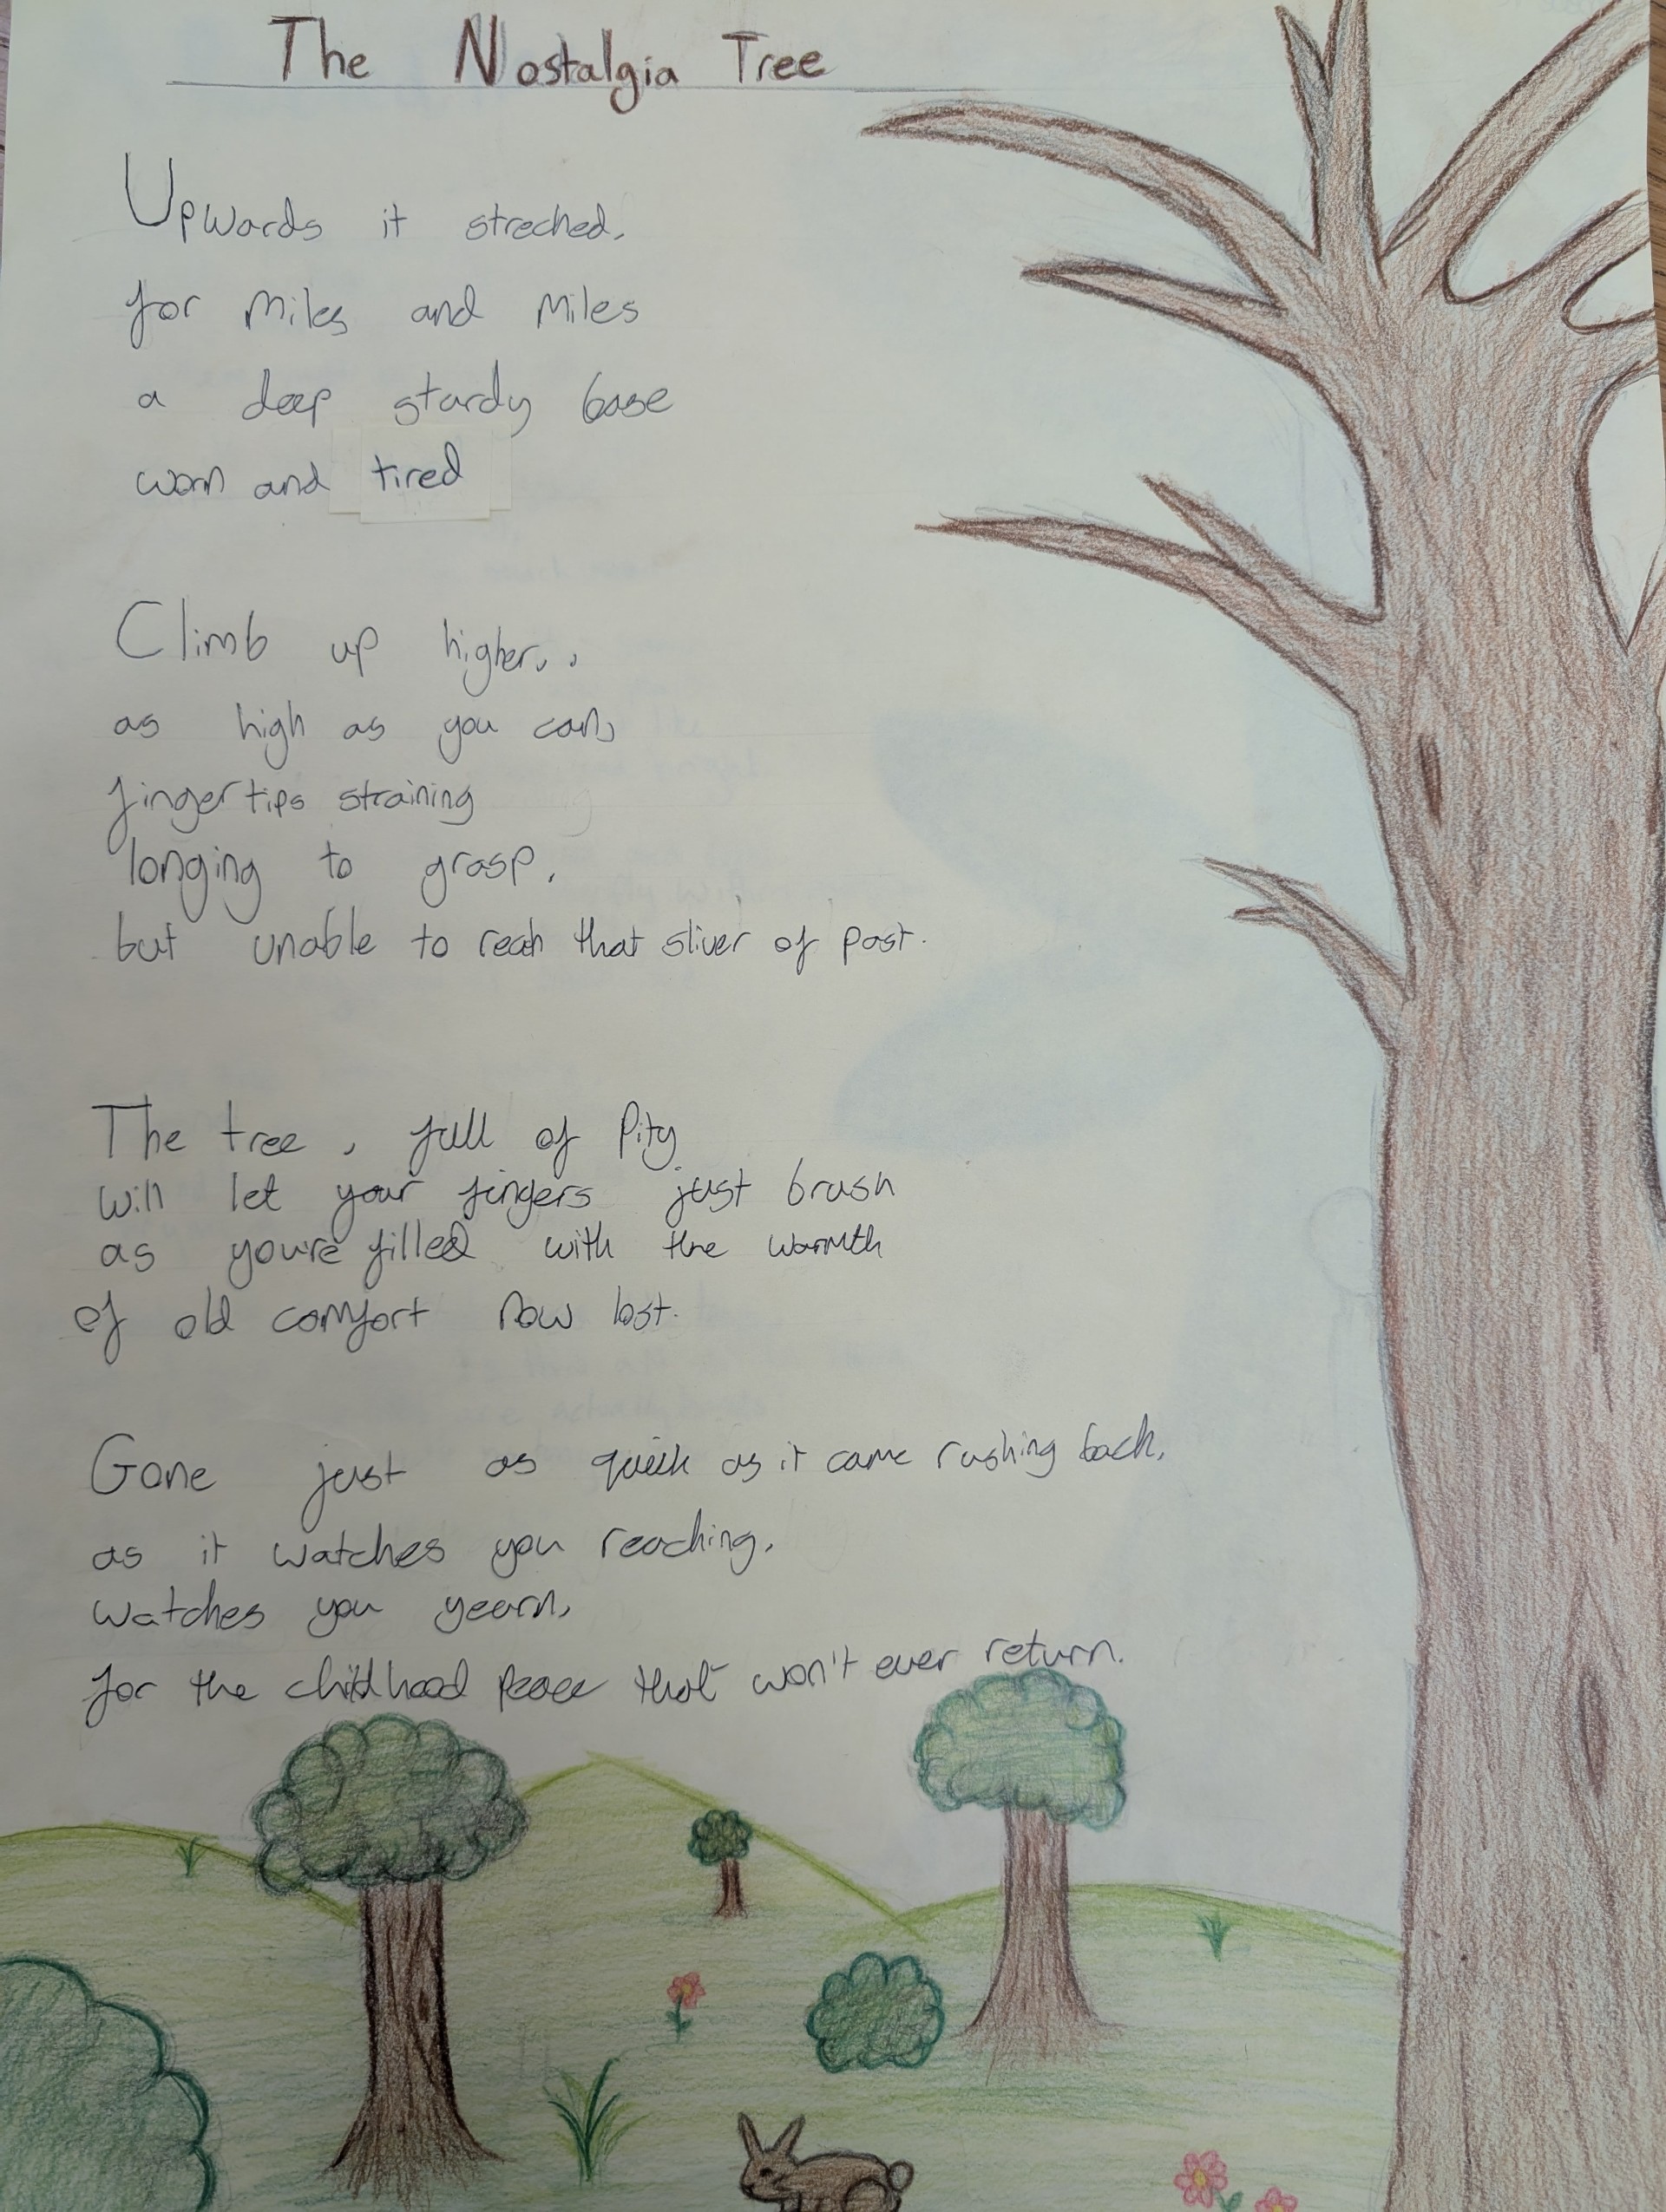 The Nostalgia Tree
Upwards it streched,
for miles and miles
a deep sturdy base
worn and tired
Climb up higher,,
as high as you can,
fingertips straining
longing to grasp,
but unable to reah that sliver of past.
The tree, full of Pity
will let your fingers just brush
as you're filled with the warmth
of old comfort now lost.
Gone just as quick as it came rushing back,
as it watches you reaching,
watches you yearn,
for the childhood peace that won't ever return.